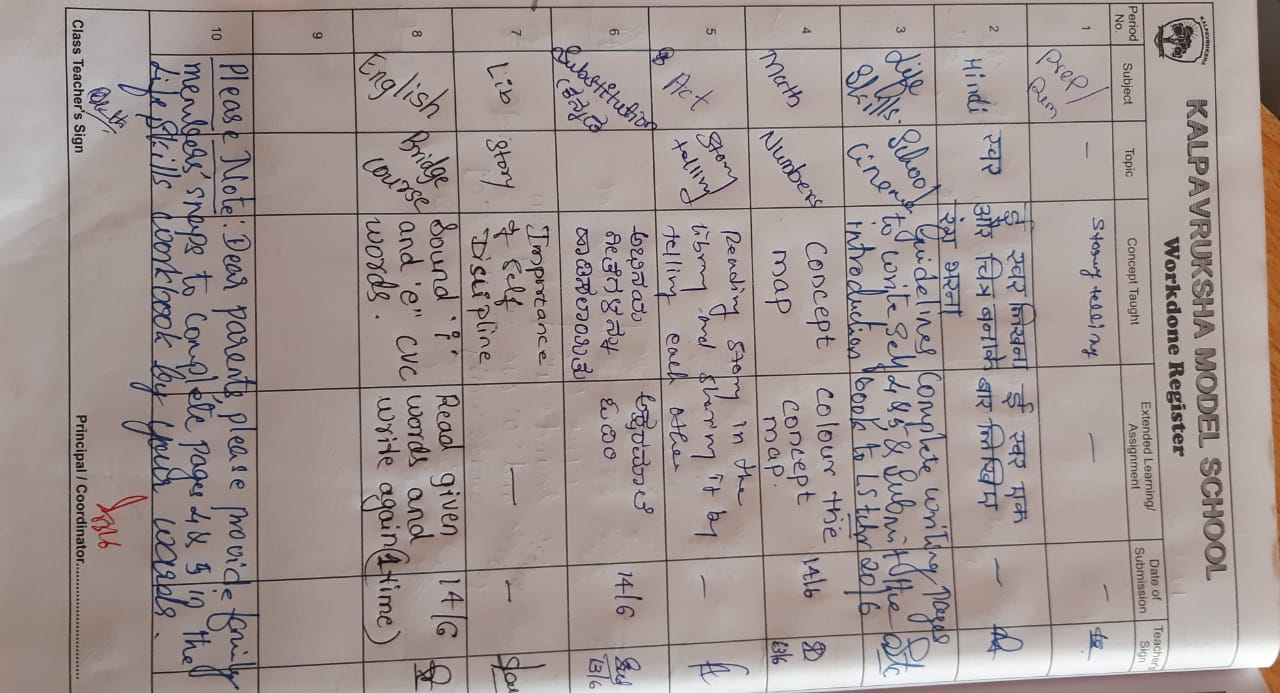 KALPAVRUKSHA MODEL SCHOOL
Workdone Register
Period No. Subject Topic Concept Taught Extended Learning/ Assignment Date of Submission Teacher's Sign
1 Prep/ - Story telling - -
2 Hindi स्वर ई स्वर लिखना और चित्र बनाके रंग भरना ई स्वर एक बार लिखिए -
3 Life Skills. School Cinema Guidelines to write Self introduction Complete writing pages 4 & 5 & Submit the book to LS tchr 20/6
4 Math Numbers Concept map Colour the concept map. 14/6
13/6
5 Act Story telling Reading story in the library and sharing it by telling each other -
6 Substitution (ಕನ್ನಡ) 14/6
13/6
7 Lib Story Importance of Self Discipline - -
8 English Bridge course Sound "i" and "e" CVC words. Read given words and write again (1 time) 14/6
9
10 Please Note: Dear parents please provide family
members' snaps to complete pages 4 & 5 in the
Life skills workbook by your wards.
Class Teacher's Sign Principal / Coordinator
13/6